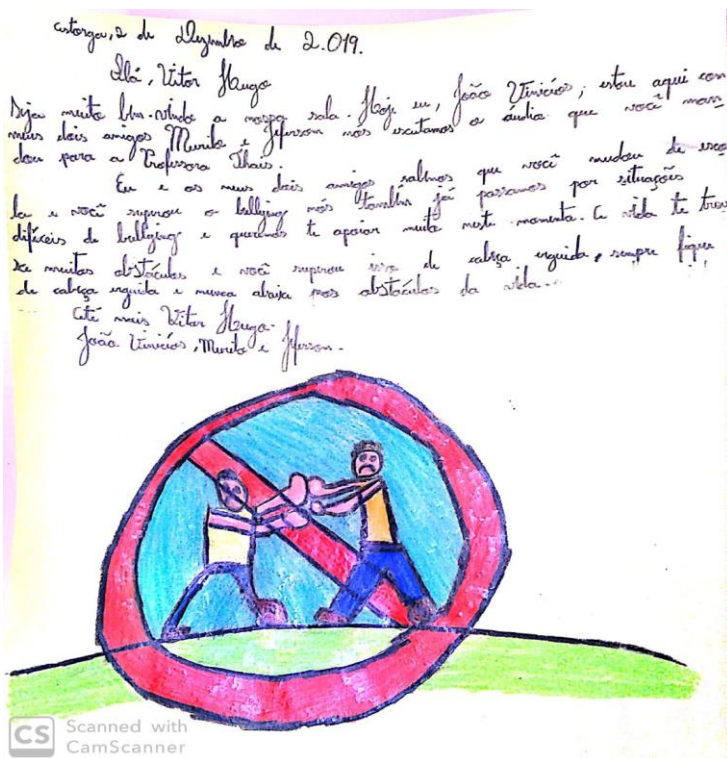 Astorga, 2 de Dezembro de 2.019.
Olá, Vitor Hugo
Seja muito bem-vindo a nossa sala. Hoje eu, João Vinicios, estou aqui com
meus dois amigos Murilo e Jeferson nos escutamos o áudio que você man
dou para a Professora Thais.
Eu e os meus dois amigos sabemos que você mudou de esco
la e você superou o bullying nós também já passamos por situações
difíceis de bullying e queremos te apoiar muito neste momento. A vida te trou
xe muitos obstáculos e você superou isso de cabeça erguida, sempre fique
de cabeça erguida e nunca abaixe nos obstáculos da vida...
Até mais Vitor Hugo.
João Vinicios, Murilo e Jeferson.
CS Scanned with
CamScanner